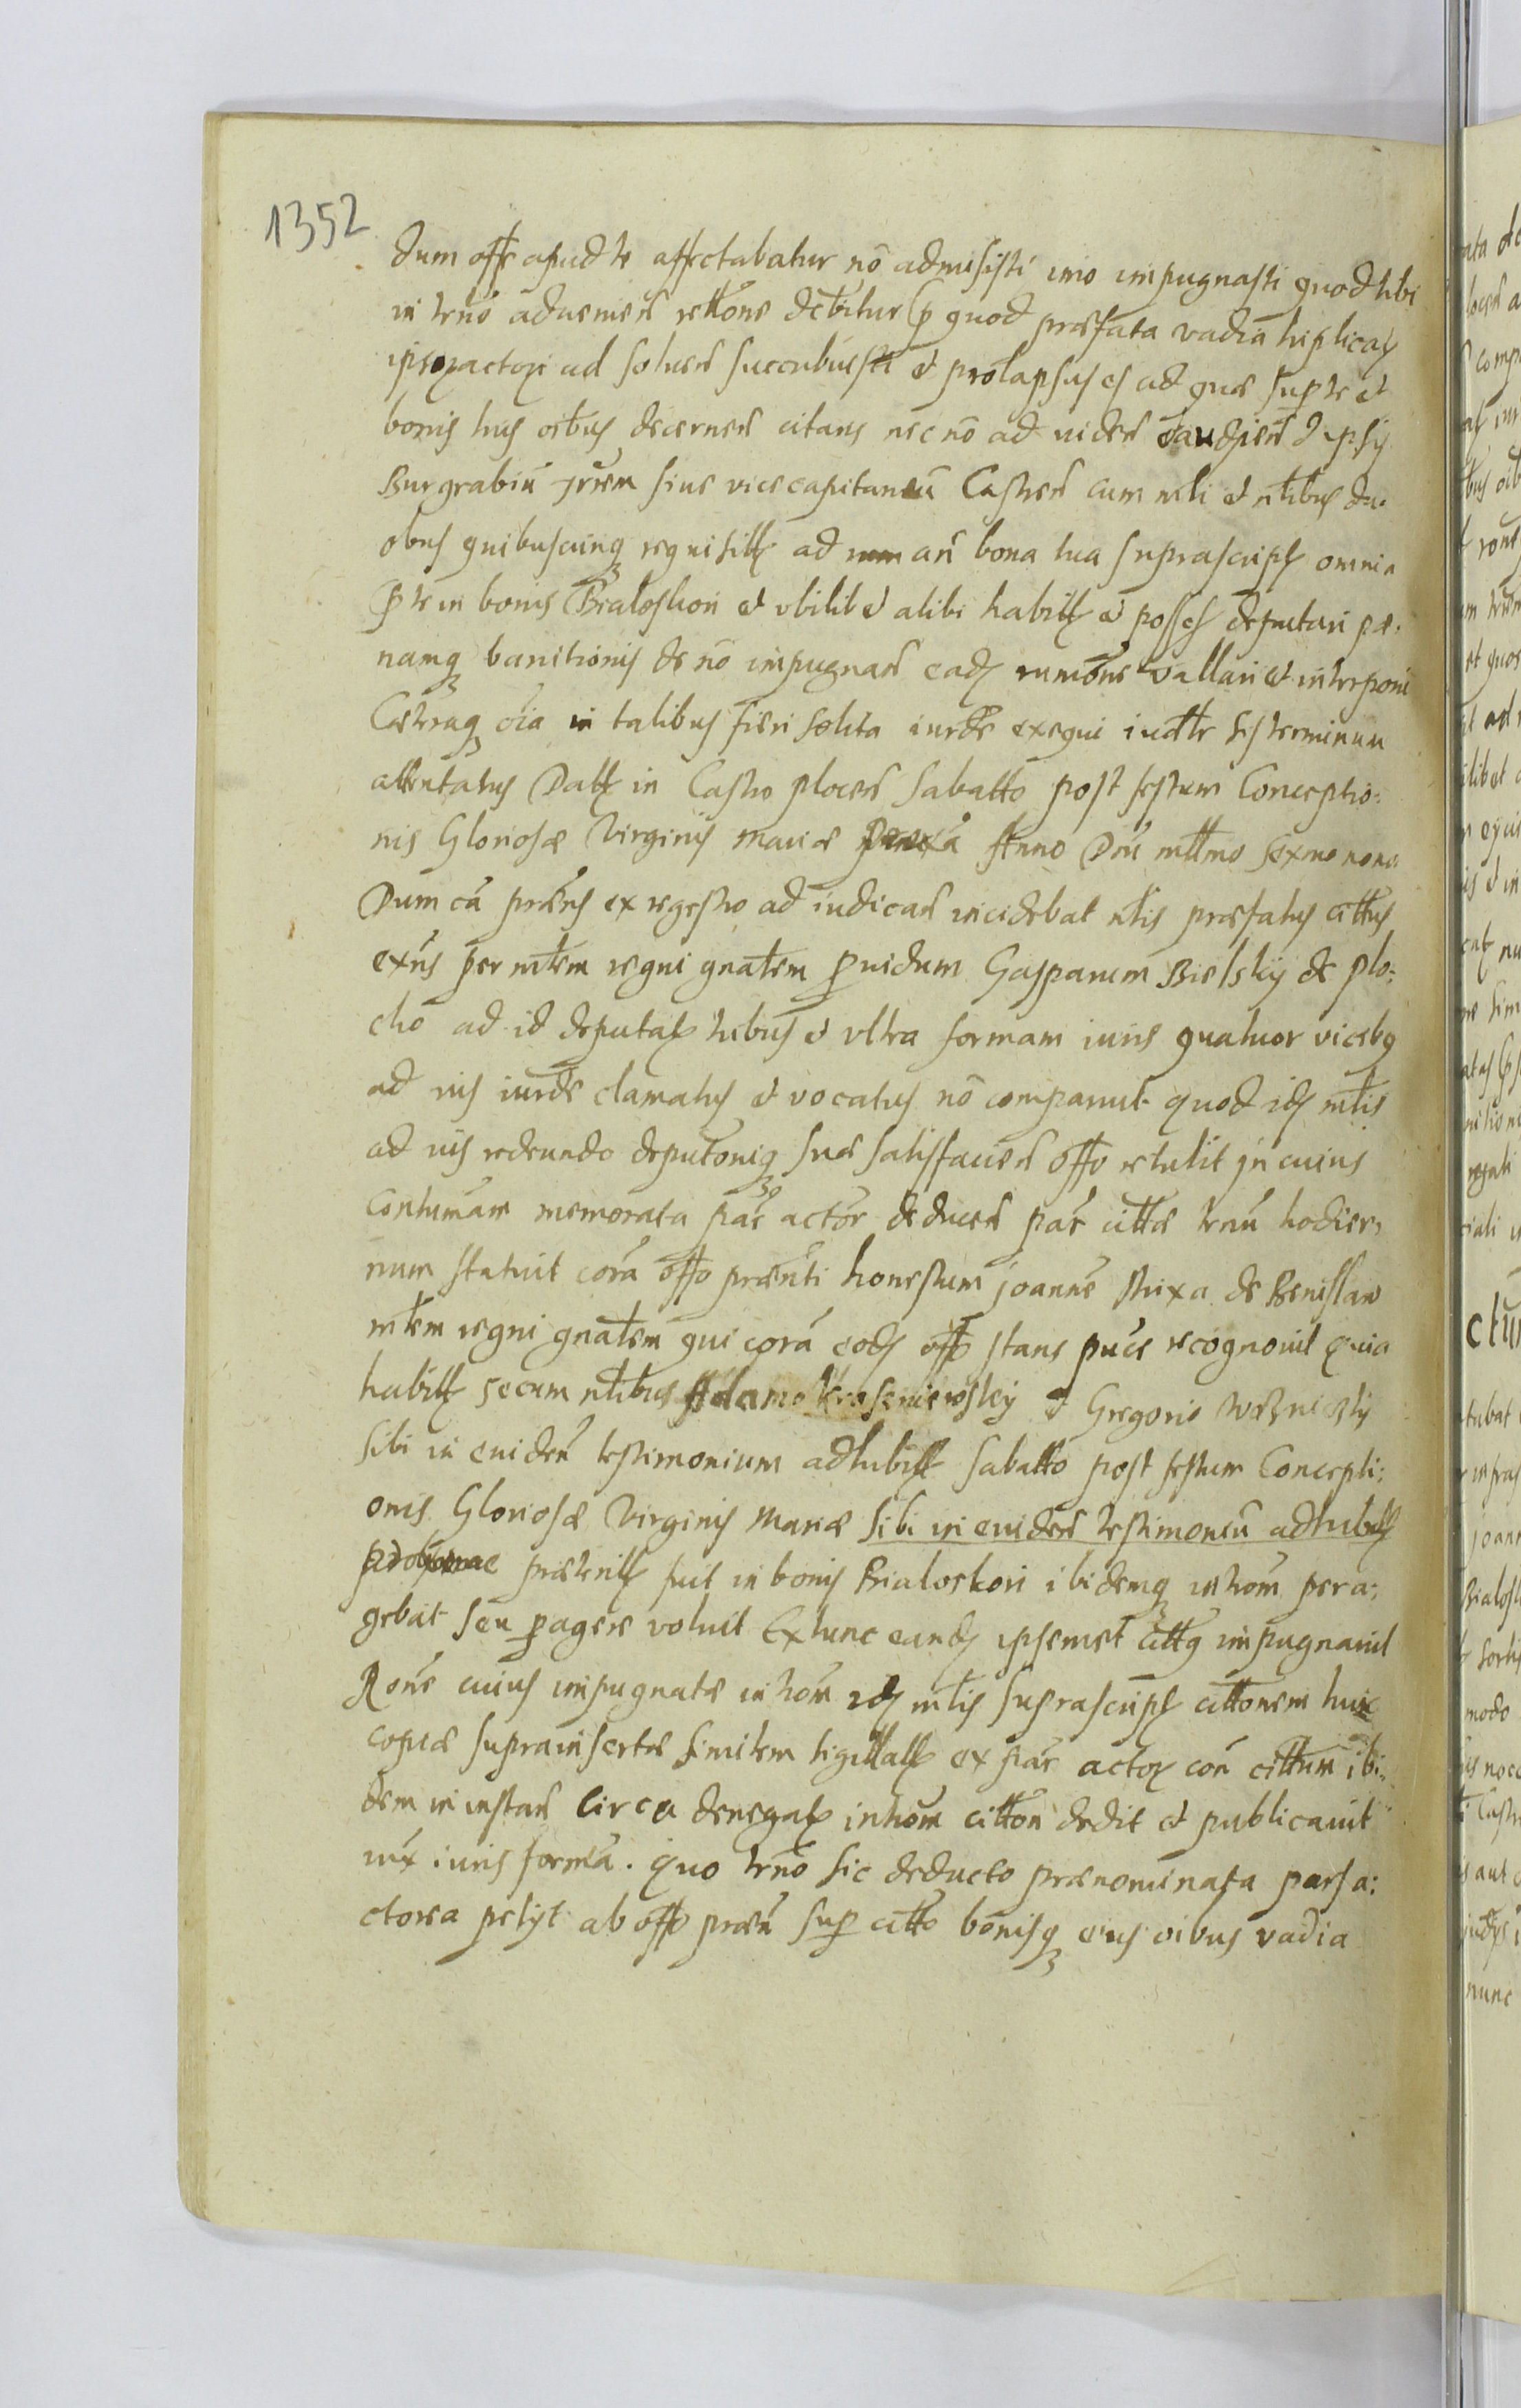 1352
dum offe apud te affectabatur nō admisisti imo impugnasti quod tibi
in trno aduenien rettone debitur p quod præfata vadia triplicat
ipso actori ad soluen succubuisti et prolapsus es ad quæ sup te et
bonis tuis oibus decernen citaris nec nō ad viden et audien
Burgrabiū siue vicecapitaneū Castren cum mli et ntibus du-
obus quibuscunq requisitt ad an bona tua suprascript omnia
p te in bonis Bialoskori et vbilibt et alibi habitt et posses deputari pæ-
namq banitionis de nō impugnan ead vallari et interponi
Cæteraq oīa in talibus fieri solita iurde exequi terminum
attentatus Datt in Castro plocen Sabatto post festum Conceptio-
nis Gloriosæ Virginis Mariæ proxa Anno Dni mttmo sexmo nono
Dum cā præns ex regestro ad iudican incidebat ntis præfatus cittus
exns per mtem regni gnatem puidum Gasparum Bielskij de plo-
cko ad id deputat tribus et vltra formam iuris quatuor vicibq
ad ius iurde clamatus et vocatus nō comparuit quod id mtis
ad ius redeundo deputoniq suæ satisfacien offo retulit jn cuius
contumam memorata pars actor deducen par cittæ trnū hodier-
num statuit corā offo prænti honestum joanne Struxa de Renislaw
mtem regni gnatem qui corā eod offo stans puce recognouit quia
habitt secum ntibus Adamo Kraseniewskij et Gregorio
sibi in euiden testimonium adhibitt sabatto post festum Concepti-
onis Gloriosæ Virginis Mariæ sibi in euiden testimoniū adhibitt
præteritt fuit in bonis Bialoskori ibidemq inhom pera-
gebat seu pagere voluit Extunc eand ipsemet cittq impugnauit
Rone cuius impugnatæ inhom id mtis suprascript cittonem huic
copiæ suprainsertæ similem sigillatt ex par actor con cittum ibi-
dem in instan circa denegat inhom citton dedit et publicauit
iux iuris formā. Quo trno sic deducto prænominata pars a-
ctorea petijt ab offo præn sup citto bonisq eius oibus vadia